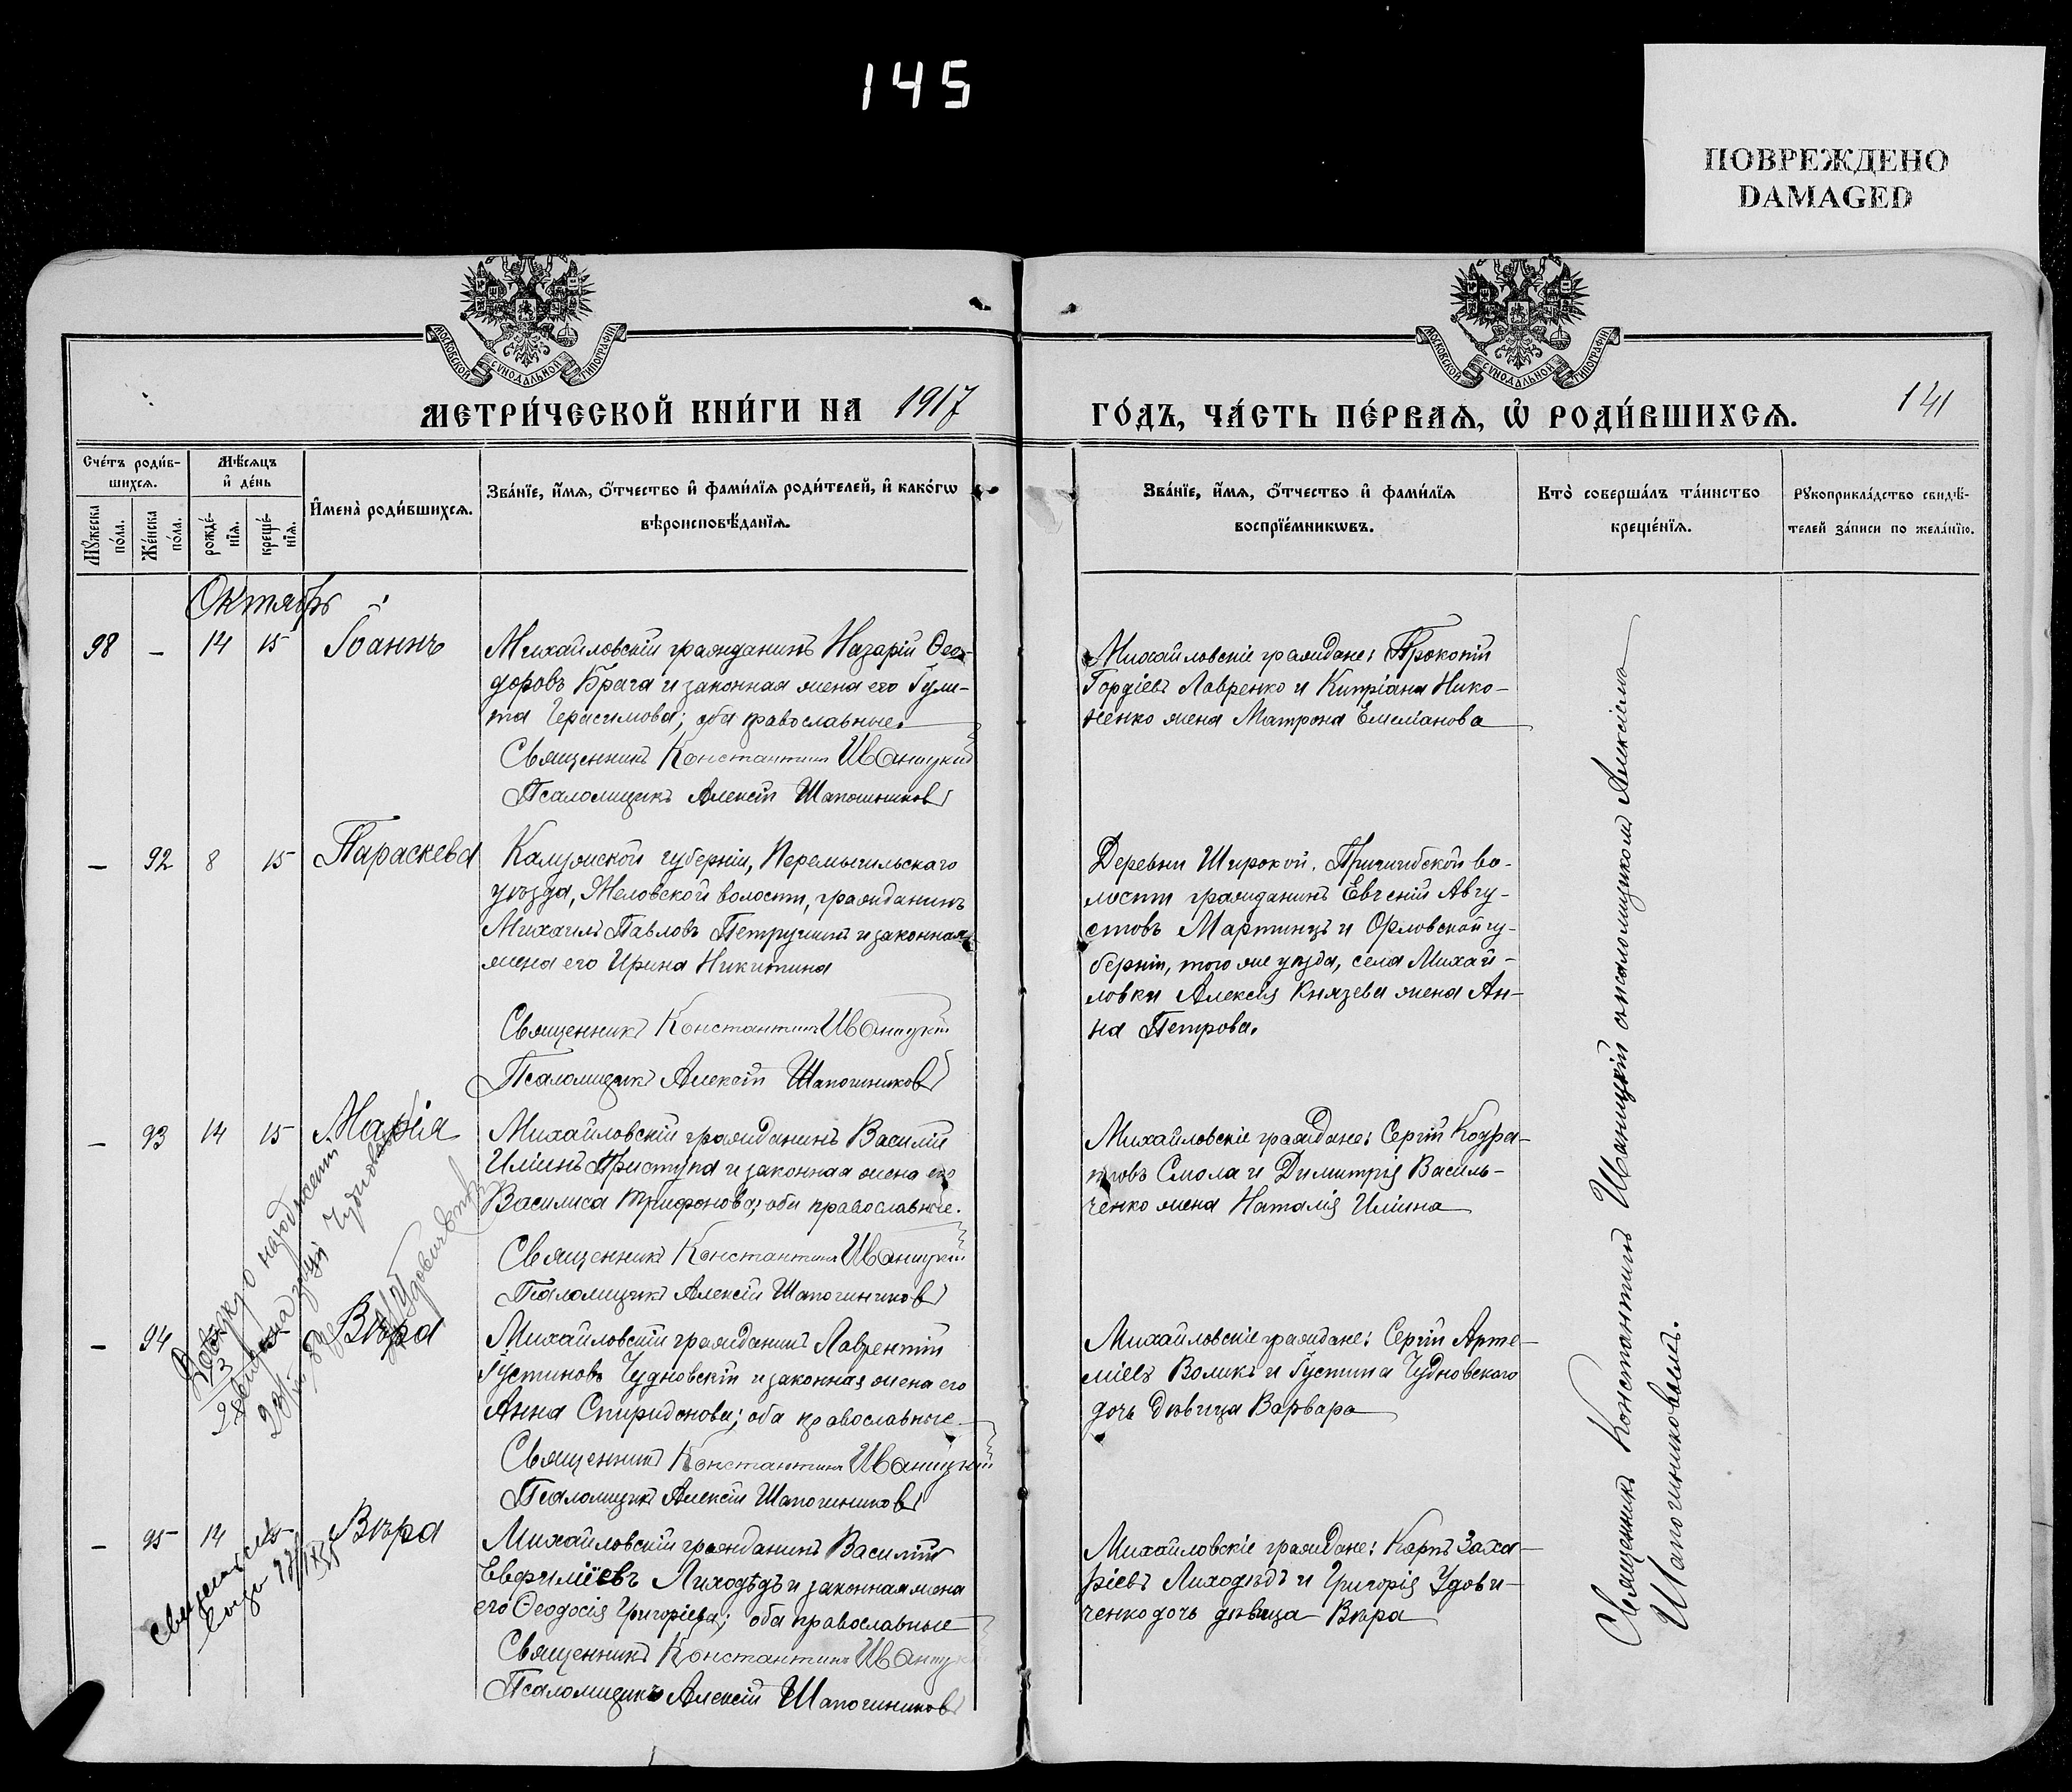 145
ПОВРЕЖДЕНО
DAMAGED
МОСКОВСКОЙ СѴНОДАЛЬНОЙ ТИПОГРАФІИ
МОСКОВСКОЙ СѴНОДАЛЬНОЙ ТИПОГРАФІИ
МЕТРИ́ЧЕСКОЙ КНИ́ГИ НА 1917
ГО́ДЪ, ЧА́СТЬ ПЕ́РВАѦ, Ѡ҆ РОДИ́ВШИХСѦ.
141
Сче́тъ роди́в-
шихсѧ.
Мꙋ́жеска по́ла.
Же́нска по́ла.
Мѣ́сѧцъ
и҆ де́нь
рожде́-
нїѧ.
креще́-
нїѧ.
И҆мена̀ роди́вшихсѧ.
Зва́нїе, и҆́мѧ, ѻ҆́тчество и҆ фами́лїѧ роди́телей, и҆ како́гѡ
вѣроисповѣ́данїѧ.
Зва́нїе, и҆́мѧ, ѻ҆́тчество и҆ фами́лїѧ
воспрїе́мникѡвъ.
Кто̀ соверша́лъ та́инство
креще́нїѧ.
Рꙋкоприкла́дство свидѣ́-
телей за́писи по жела́нїю.
Октябрь
98 — 14 15 Іоаннъ
Михайловскій гражданинъ Назарій Ѳео-
доровъ Брага и законная жена его Іули-
та Герасимова; оба православные.
Священникъ Константинъ Иваницкій
Псаломщикъ Алексій Шапошниковъ
Михайловскіе граждане: Прокопій
Гордіевъ Лавренко и Кипріана Нико-
ненко жена Матрона Емеліанова
— 92 8 15 Параскева
Калужской губерніи, Перемышльскаго
уѣзда, Желовской волости, гражданинъ
Михаилъ Павловъ Петрушинъ и законная
жена его Ирина Никитина
Священникъ Константинъ Иваницкій
Псаломщикъ Алексій Шапошниковъ
Деревни Широкой, Пришибской во-
лости гражданинъ Евгеній Авгу-
стовъ Мартинцъ и Орловской гу-
берніи, того же уѣзда, села Михай-
ловки Алексія Князева жена Ан-
на Петрова.
— 93 14 15 Марія
Михайловскій гражданинъ Василій
Иліинъ Приступа и законная жена его
Василиса Трифонова; оба православные.
Священникъ Константинъ Иваницкій
Псаломщикъ Алексій Шапошниковъ
Михайловскіе граждане: Сергій Кодра-
товъ Смола и Димитрія Василь-
ченко жена Наталія Иліина
— 94 Вѣра
Михайловскій гражданинъ Лаврентій
Іустиновъ Чудновскій и законная жена его
Анна Спиридонова; оба православные
Священникъ Константинъ Иваницкій
Псаломщикъ Алексій Шапошниковъ
Михайловскіе граждане: Сергій Арте-
міевъ Воликъ и Іустина Чудновскаго
дочь дѣвица Варвара
— 95 14 15 Вѣра
Михайловскій гражданинъ Василій
Евфиміевъ Лиходѣдъ и законная жена
его Ѳеодосія Григоріева; оба православные
Священникъ Константинъ Иваницкій
Псаломщикъ Алексій Шапошниковъ
Михайловскіе граждане: Карпъ Заха-
ріевъ Лиходѣдъ и Григорія Удови-
ченко дочь дѣвица Вѣра
Священникъ Константинъ Иваницкій съ псаломщикомъ Алексіемъ
Шапошниковымъ.